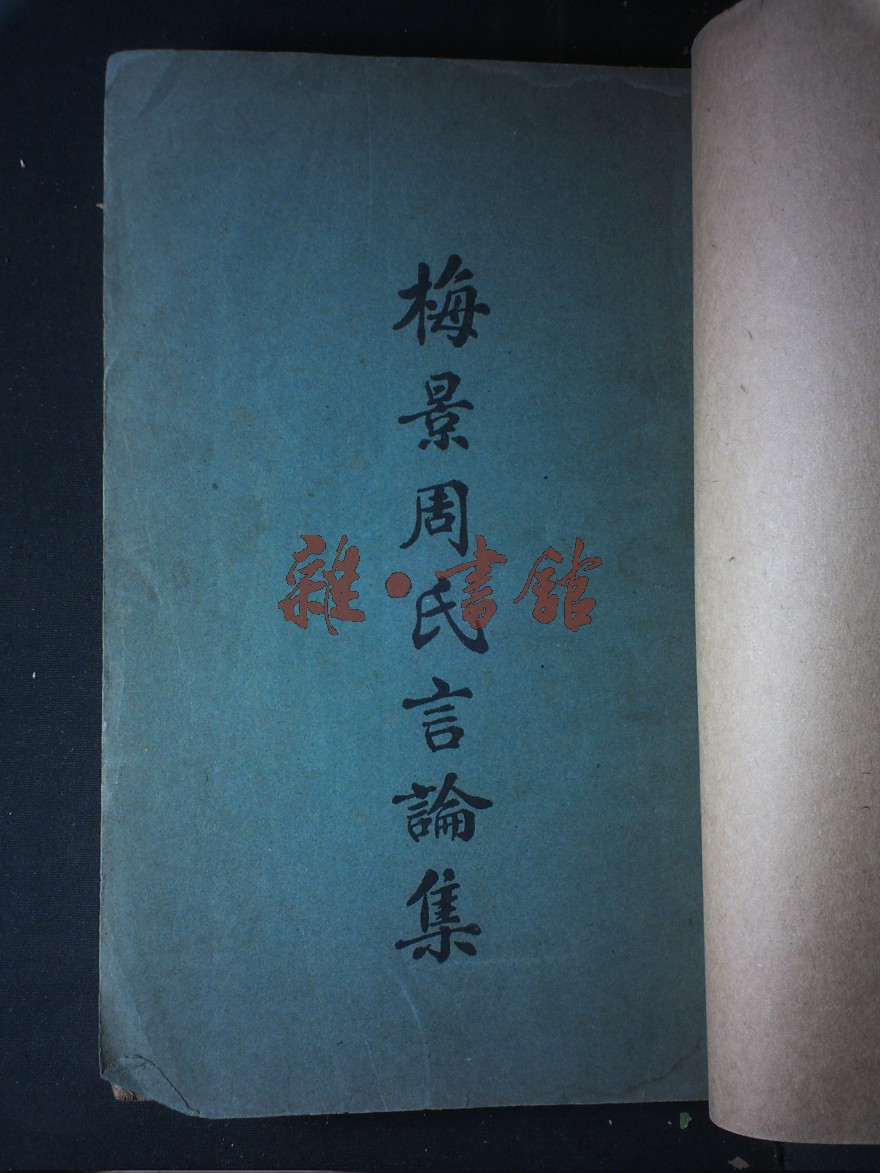 梅景周氏言論集
雜·書館